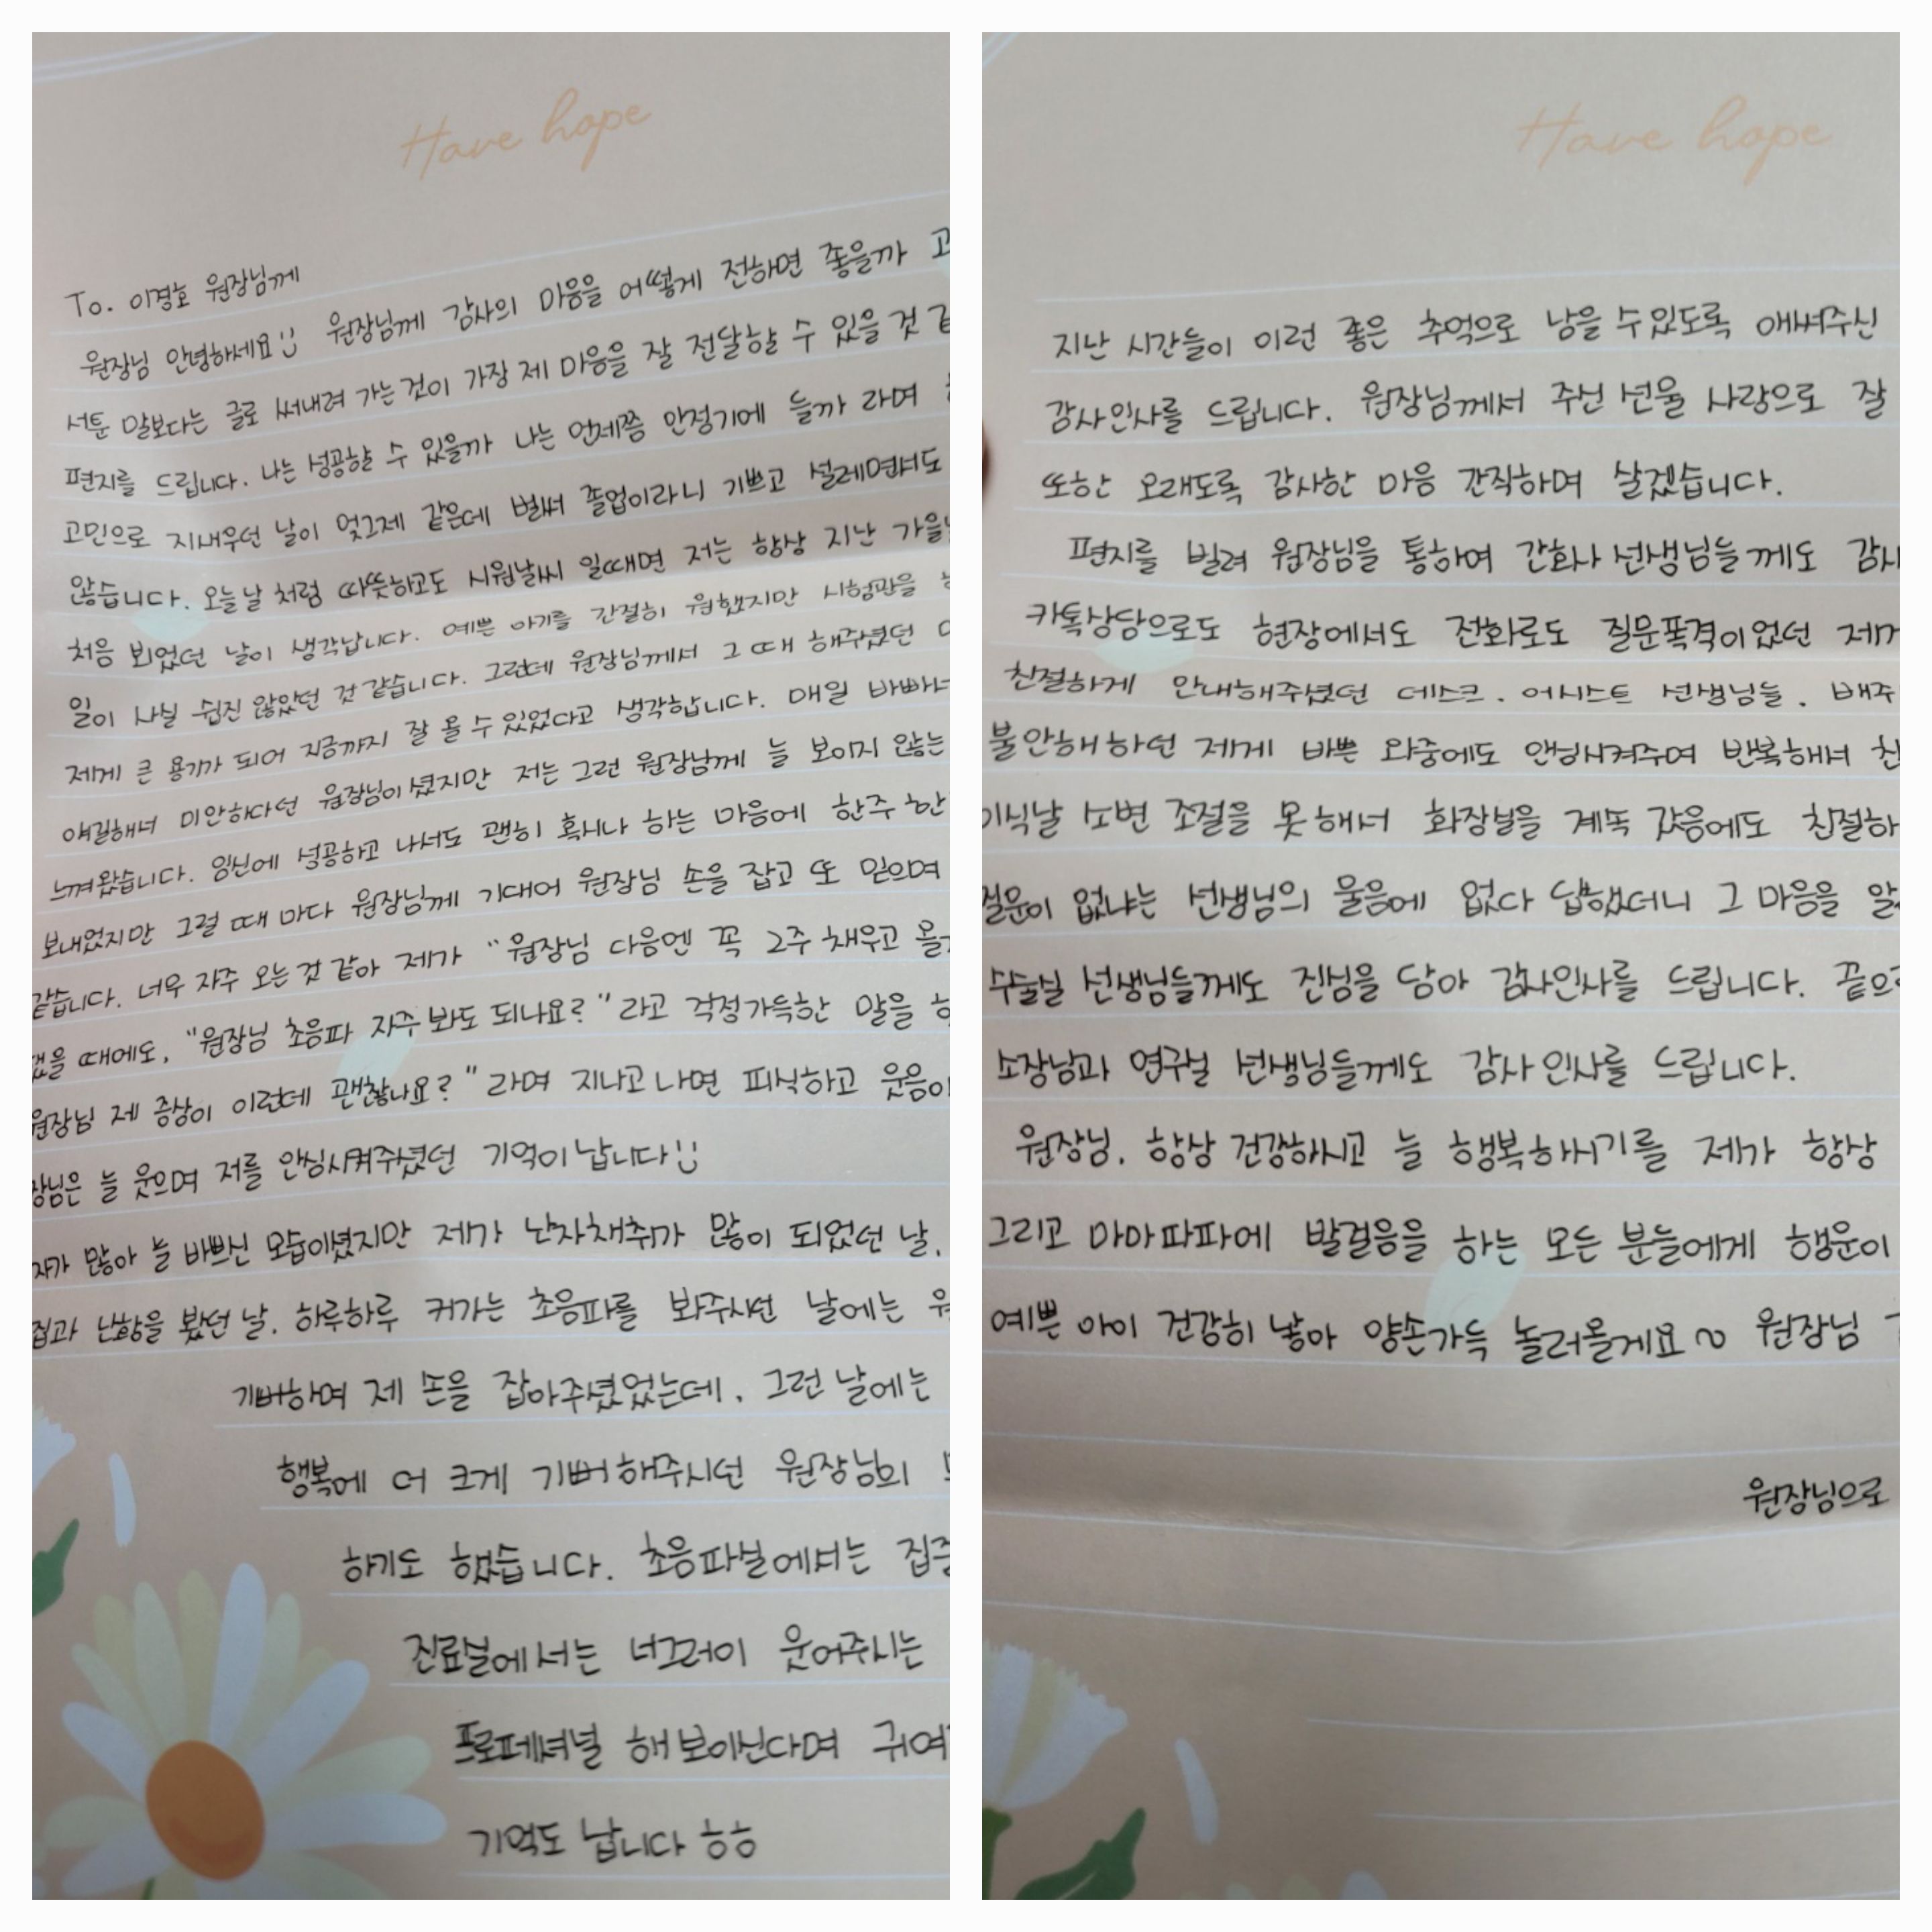 Have hope
To. 이경호 원장님께
원장님 안녕하세요:) 원장님께 감사의 마음을 어떻게 전하면 좋을까 고
서툰 말보다는 글로 써내려 가는 것이 가장 제 마음을 잘 전달할 수 있을 것 같
편지를 드립니다. 나는 성공할 수 있을까 나는 언제쯤 안정기에 들까 라며
고민으로 지새우던 날이 엊그제 같은데 벌써 졸업이라니 기쁘고 설레면서도
않습니다. 오늘날 처럼 따뜻하고도 시원날씨 일때면 저는 항상 지난 가을
처음 뵈었던 날이 생각납니다. 예쁜 아기를 간절히 원했지만 시험관을
일이 사실 쉽진 않았던 것 같습니다. 그런데 원장님께서 그 때 해주셨던
제게 큰 용기가 되어 지금까지 잘 올 수 있었다고 생각합니다. 매일 바빠서
얘길해서 미안하다던 원장님이셨지만 저는 그런 원장님께 늘 보이지 않는
느껴왔습니다. 임신에 성공하고 나서도 괜히 혹시나 하는 마음에 한주 한
보내었지만 그럴 때 마다 원장님께 기대어 원장님 손을 잡고 또 믿으며
같습니다. 너무 자주 오는 것 같아 제가 "원장님 다음엔 꼭 2주 채우고 올
했을 때에도, "원장님 초음파 자주 봐도 되나요?" 라고 걱정가득한 말을
원장님 제 증상이 이런데 괜찮나요?" 라며 지나고 나면 피식하고 웃음이
장님은 늘 웃으며 저를 안심시켜주셨던 기억이 납니다:)
자가 많아 늘 바쁘신 모습이셨지만 제가 난자채취가 많이 되었던 날,
집과 난황을 봤던 날, 하루하루 커가는 초음파를 봐주시던 날에는 원
기뻐하며 제 손을 잡아주셨었는데, 그런 날에는
행복에 더 크게 기뻐해주시던 원장님의
하기도 했습니다. 초음파실에서는 집중
진료실에서는 너그러이 웃어주시는
프로페셔널 해보이신다며 귀여
기억도 납니다 ㅎㅎ
Have hope
지난 시간들이 이런 좋은 추억으로 남을 수 있도록 애써주신
감사인사를 드립니다. 원장님께서 주신 선물 사랑으로 잘
또한 오래도록 감사한 마음 간직하며 살겠습니다.
편지를 빌려 원장님을 통하여 간호사 선생님들께도 감사
카톡상담으로도 현장에서도 전화로도 질문폭격이었던 제게
친절하게 안내해주셨던 데스크. 어시스트 선생님들. 배주
불안해하던 제게 바쁜 와중에도 안심시켜주며 반복해서 친
이식날 소변 조절을 못해서 화장실을 계속 갔음에도 친절하
질문이 없냐는 선생님의 물음에 없다 답했더니 그 마음을 알
수술실 선생님들께도 진심을 담아 감사인사를 드립니다. 끝으로
소장님과 연구실 선생님들께도 감사 인사를 드립니다.
원장님. 항상 건강하시고 늘 행복하시기를 제가 항상
그리고 마마파파에 발걸음을 하는 모든 분들에게 행운이
예쁜 아이 건강히 낳아 양손가득 놀러올게요~ 원장님
원장님으로